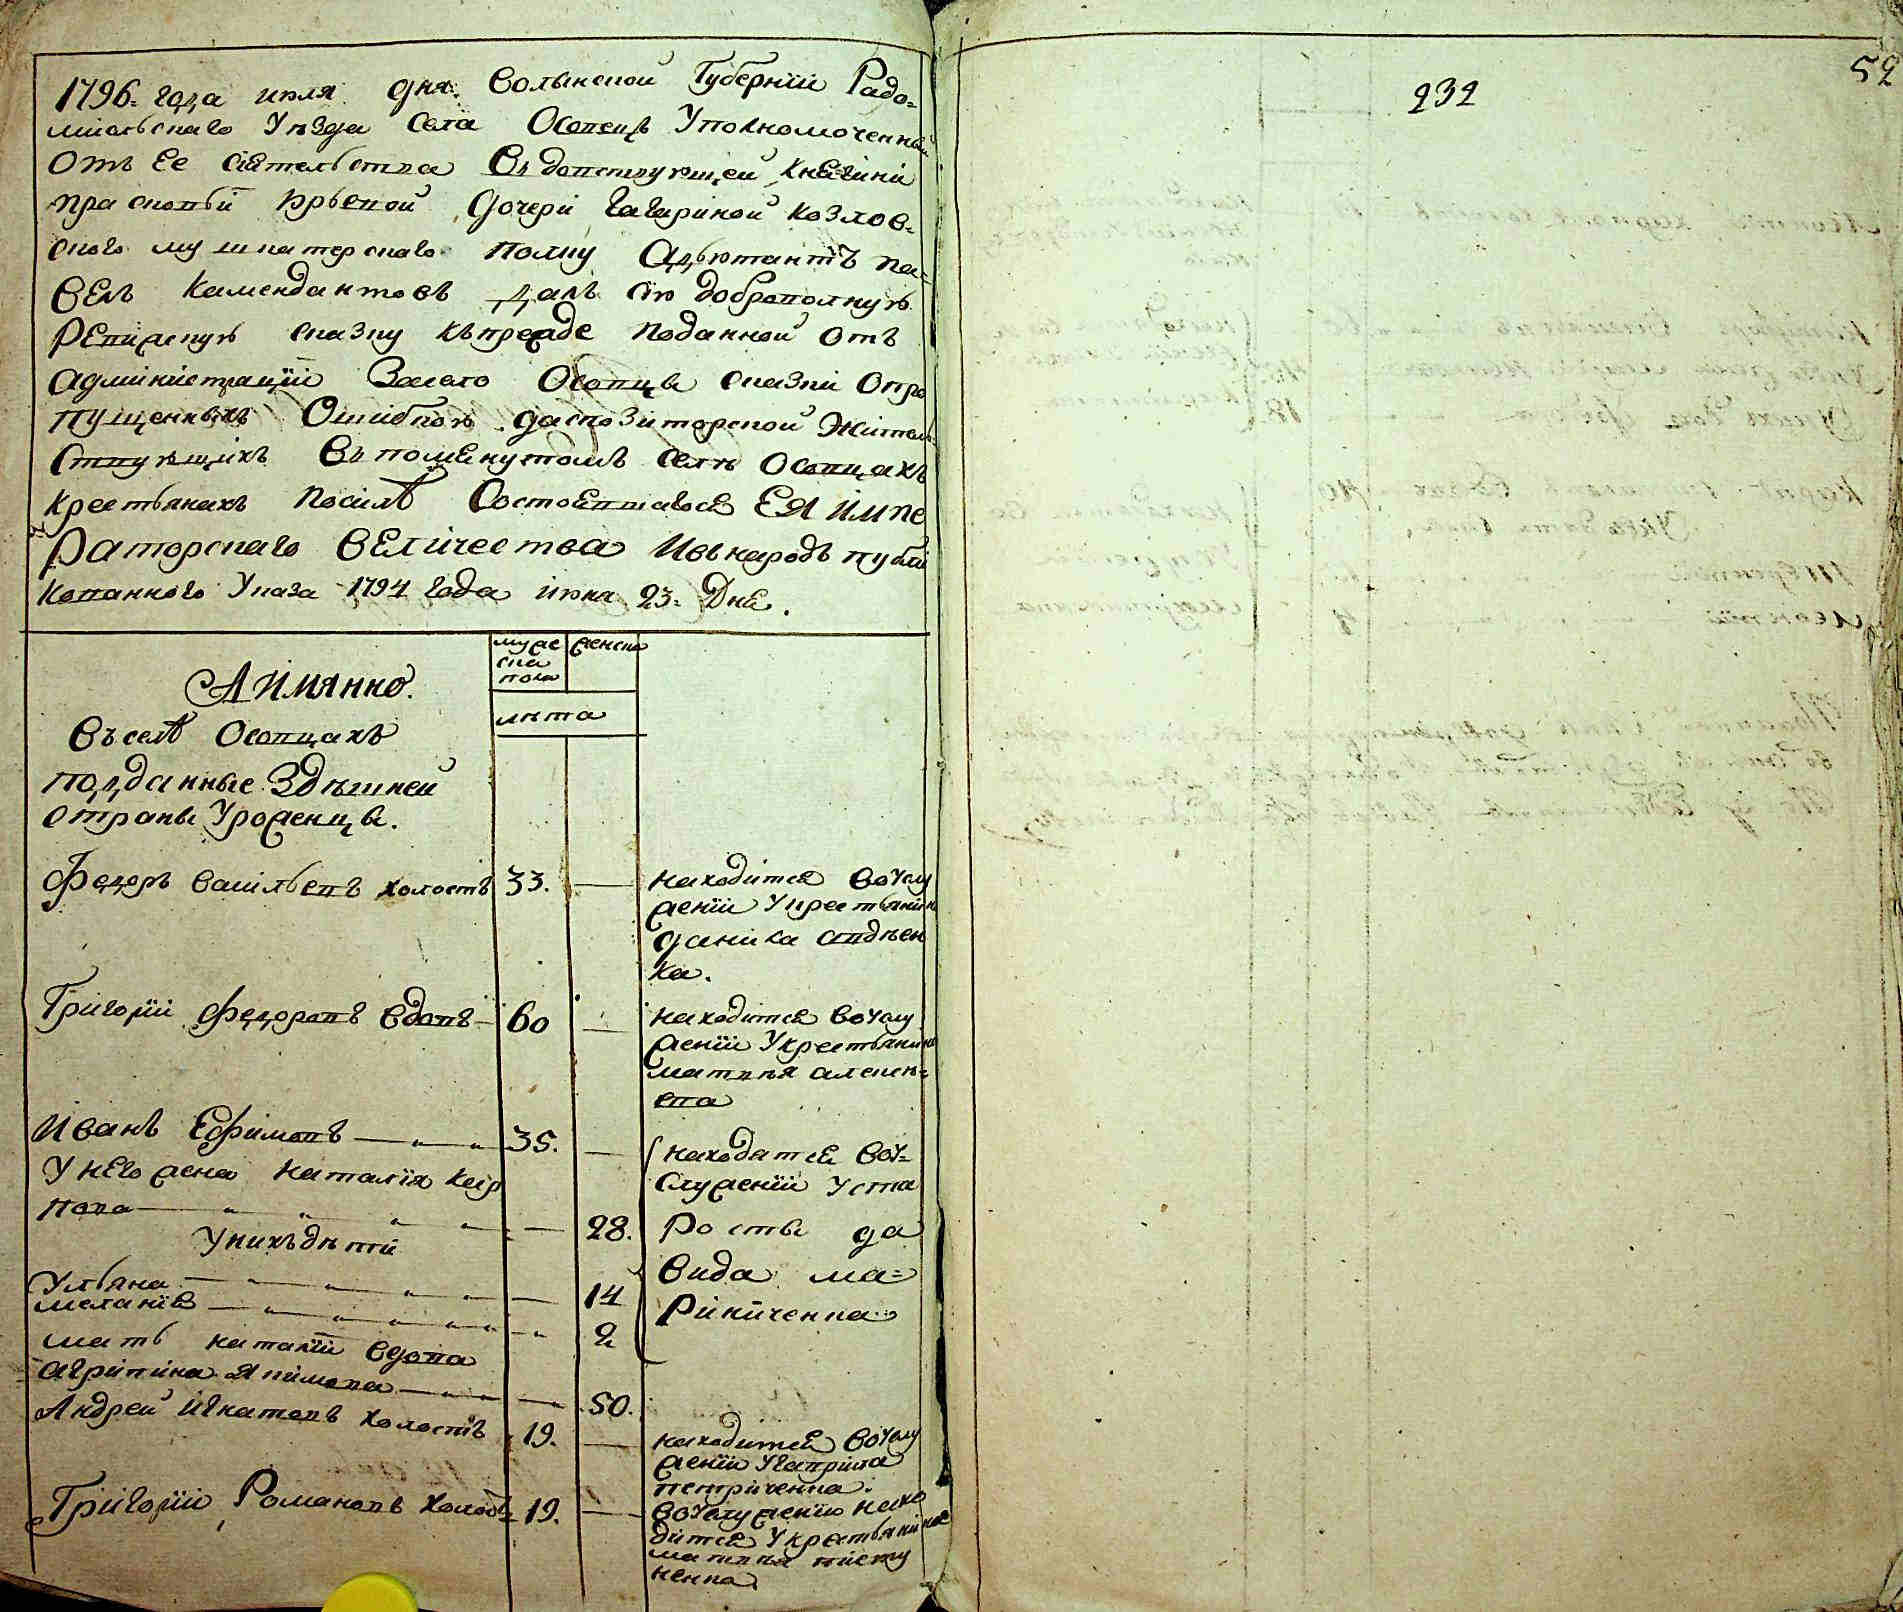 1796. года июля дня. Волынской Губернїи Радо=
мысльскаго Уѣзда Села Осовецъ Уполномоченный
Отъ Ее Сїятельства Вдовствующей Княгини
Прасковьи Юрьевой дочери Гагариной Козлов=
ского мушкатерского полку Адьютантъ Па=
велъ Камендантовъ далъ сїю доброполную
Ревизскую сказку къ прежде поданной отъ
Администрацїи Села Осовцы сказки о про
пущенныхъ Ошибкою диспозиторской Житель
Ствующихъ въ помянутомъ селѣ Осовцахъ
Крестьянахъ посилѣ Состоявшагося ЕЯ Импе
Раторскаго Величества И въ народъ публи
кованного Указа 1794 года июня 23. Дня.
А Имянно.
муже
ска
пола
женска
лѣта
Въ селѣ Осовцахъ
подданные Здѣшней
страны Уроженцы.
Федоръ Васильевъ холостъ 33. — находится во Услу
женїи У крестьянина
данила авдѣен
ка.
Григорїи Федоровъ вдовъ — 60 — находится во Услу
женїи У крестьянина
матвѣя алексѣ=
ева
Иванъ Ефимовъ — „ — „ 35. — находятся во У=
Служенїи У ста
Росты да
вида ма=
Риниченка
У него жена наталїя кар
пова — „ „ „ „ — 28.
У нихъ дѣти
Ульяна — „ — „ „ — 14
меланїя — „ „ „ „ „ — „ 2
мать наталїи вдова
агрипина Якимова — „ — 50.
Андрей Игнатовъ холостъ 19. — находится во Услу
женїи У гаврила
петриченка.
Григорїи Романовъ холостъ 19. — во Услуженїи нахо
дится У крестьянина
матвѣя писту
ненка
232
52